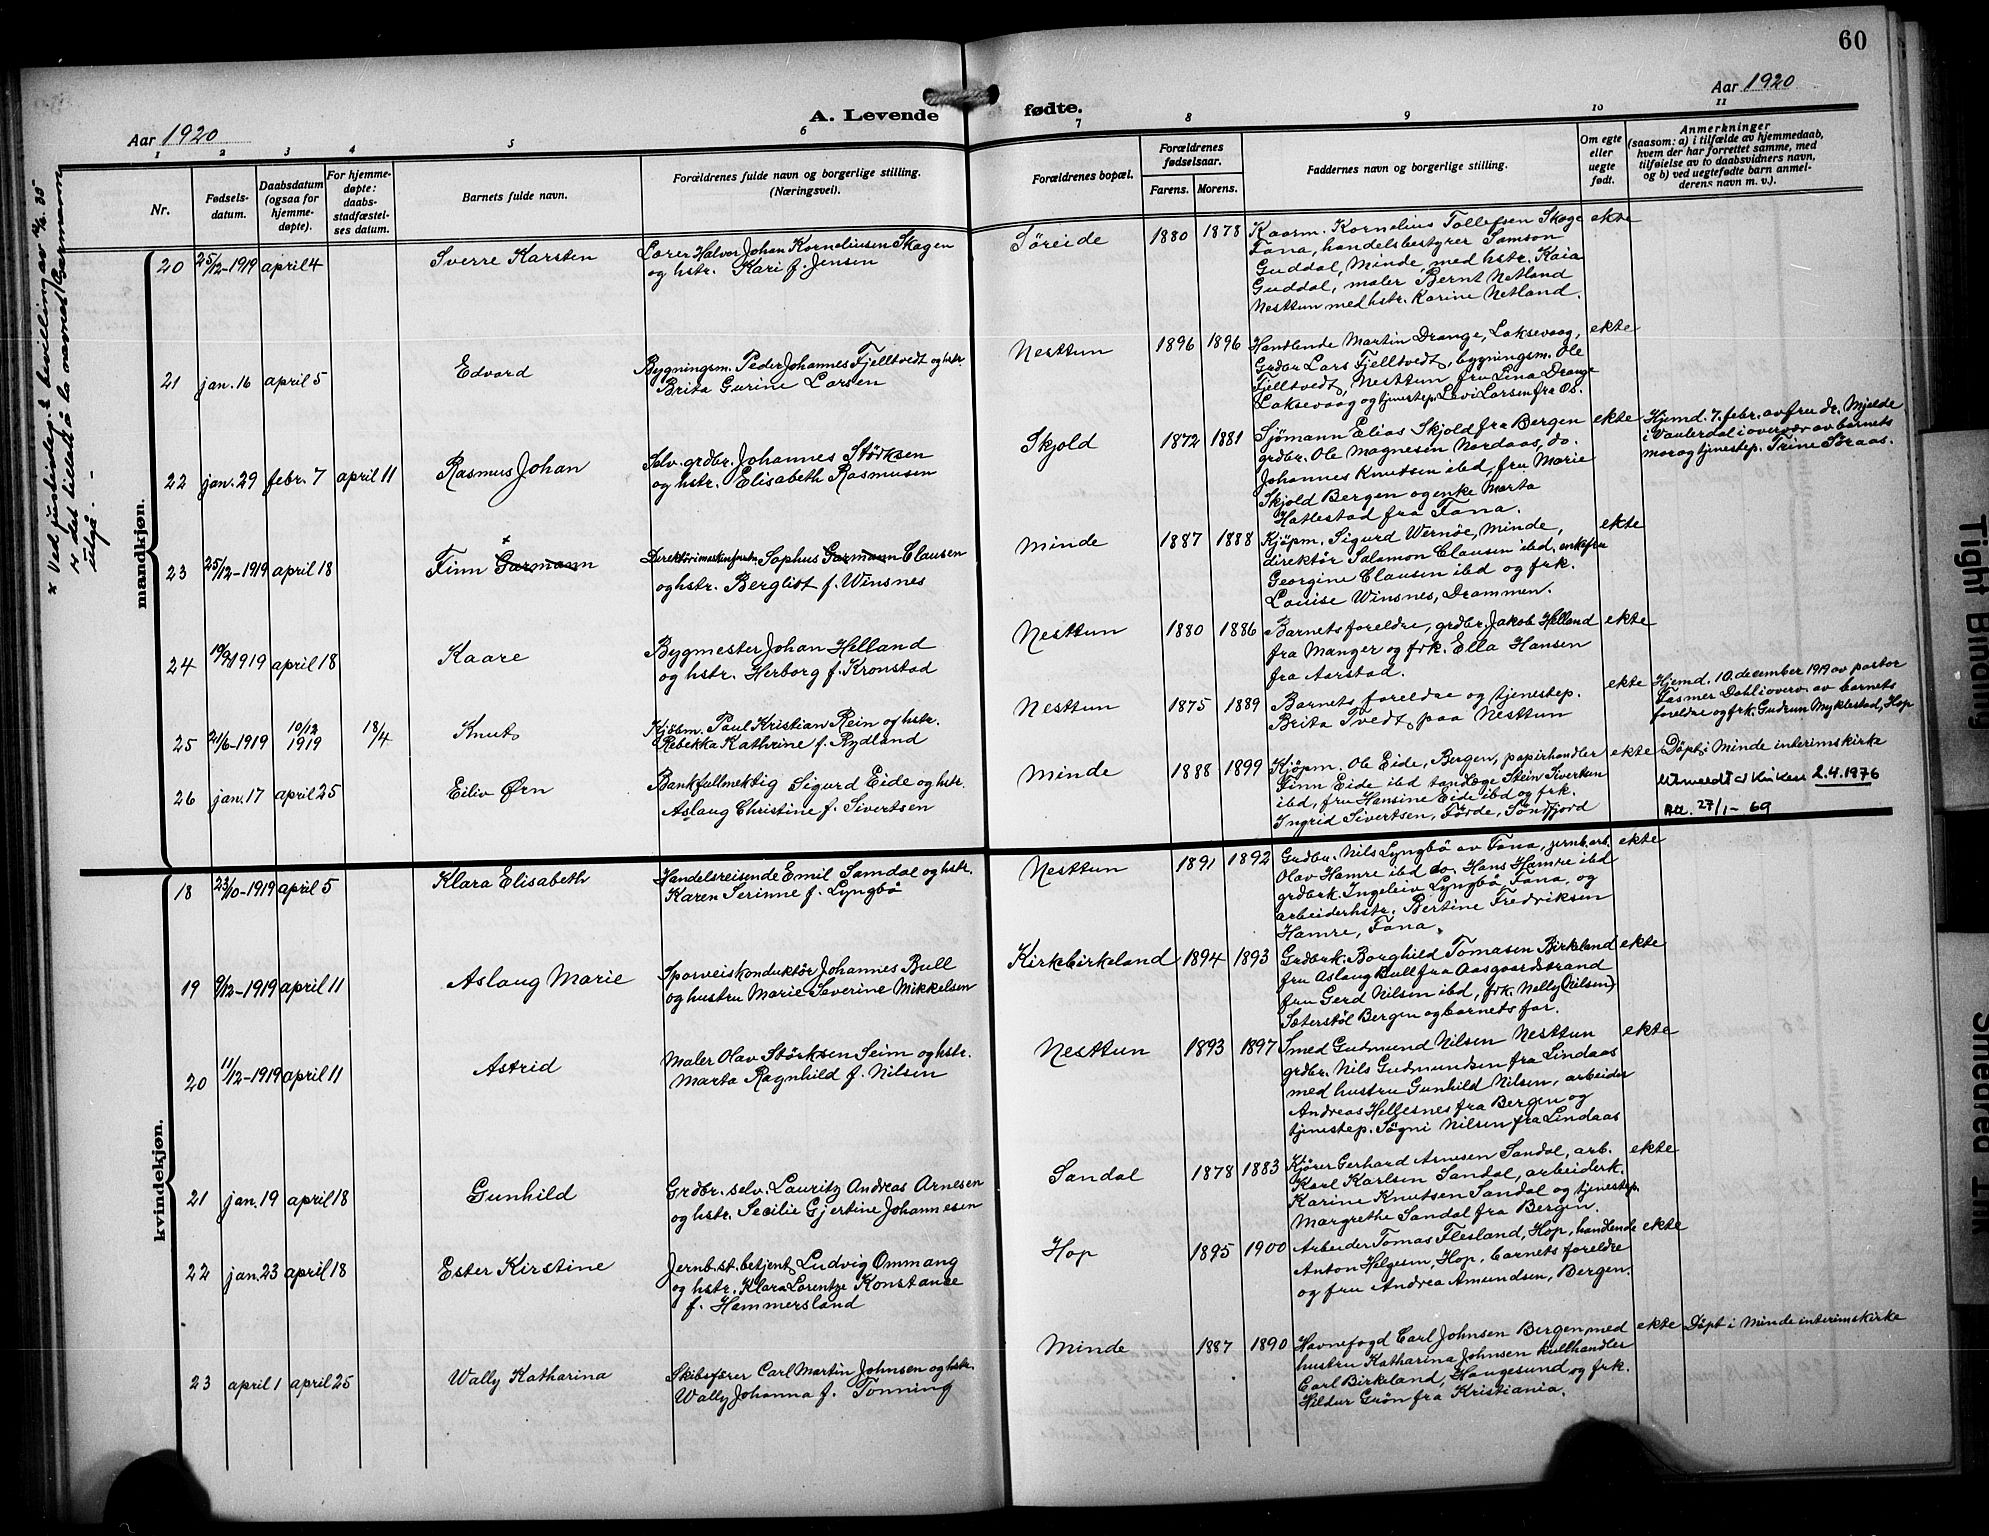 60
Aar 1920
A. Levende fødte.
Aar 1920
1 2 3 4 5 6 7 8 9 10 11
Nr.
Fødsels-
datum.
Daabsdatum
(ogsaa for
hjemme-
døpte).
For hjemme-
døpte:
daabs-
stadfæstel-
ses datum.
Barnets fulde navn.
Forældrenes fulde navn og borgerlige stilling.
(Næringsvei).
Forældrenes bopæl.
Forældrenes
fødselsaar.
Farens. Morens.
Faddernes navn og borgerlige stilling.
Om egte
eller
uegte
født.
Anmerkninger
(saasom: a) i tilfælde av hjemmedaab,
hvem der har forrettet samme, med
tilføielse av to daabsvidners navn,
og b) ved uegtefødte barn anmel-
derens navn m. v.).
x Ved justisdep.s bevilling av 35
er det tillatt å la navnet Garmann
utgå.
mandkjøn.
20 25/12-1919 april 4
Sverre Karsten
Lærer Halvor Johan Korneliussen Skagen
og hstr. Kari f. Jensen
Søreide 1880 1878
Kaarm. Kornelius Tollefsen Skage
Fana, handelsbestyrer Samson
Guddal, Minde, med hstr. Kaia
Guddal, maler Bernt Netland
Nesttun med hstr. Karine Netland.
ekte
21 jan. 16 april 5
Edvard
Bygningsm. Peder Johannes Fjelltvedt og hstr.
Brita Gurine Larsen
Nesttun 1896 1896
Handlende Martin Drange, Laksevaag,
Grdbr Lars Fjelltvedt, bygningsm. Ole
Fjelltvedt, Nesttun, fru Lina Drange
Laksevaag og tjenestep. Lovi Larsen fra Os.
ekte
22 jan. 29 febr. 7 april 11
Rasmus Johan
Selv. grdbr. Johannes Størksen
og hstr. Elisabeth Rasmusen
Skjold 1872 1881
Sjømann Elias Skjold fra Bergen
grdbr. Ole Magnesen Nordaas, do.
Johannes Knudsen ibd, fru Marie
Skjold Bergen og enke Marta
Hatlestad fra Fana.
ekte
Hjemd. 7. febr. av fru dr. Mjelde
i Vaulerdal i overvær av barnets
mor og tjenestep. Trine Søraas.
23 25/12-1919 april 18
x
Finn Garmann
Direktør i maskinforretn. Sophus Garmann Clausen
og hstr. Bergliot f. Winsnes
Minde 1887 1888
Kjøpm. Sigurd Wernøe, Minde,
direktør Salamon Clausen ibd, enkefru
Georgine Clausen ibd og frk.
Louise Winsnes, Drammen.
ekte
24 19/9 1919 april 18
Kaare
Bygmester Johan Helland
og hstr. Herborg f. Kronstad
Nesttun 1880 1886
Barnets foreldre, grdbr. Jakob Helland
fra Manger og frk. Ella Hansen
fra Aarstad.
ekte
25 21/6-1919 10/12 1919 18/4
Knut
Kjøbm. Paul Kristian Rein og hstr.
Rebekka Kathrine f. Rydland
Nesttun 1875 1889
Barnets foreldre og tjenestep.
Brita Tvedt, paa Nesttun
ekte
Hjemd. 10. december 1919 av pastor
Fasmer Dahl i overv. av barnets
foreldre og frk. Gudrun Myklestad, Hop
26 jan. 17 april 25
Eiliv Ørn
Bankfullmektig Sigurd Eide og hstr.
Aslaug Christine f. Sivertsen
Minde 1888 1899
Kjøpm. Ole Eide, Bergen, papirhandler
Finn Eide ibd tandlæge Stein Sivertsen
ibd, fru Hansine Eide ibd og frk.
Ingrid Sivertsen, Førde, Søndfjord
ekte
Døpt i Minde interimskirke
Utmeldt av kirken 2.4.1976
Att. 27/1-69
kvindekjøn.
18 23/10-1919 april 5
Klara Elisabeth
Handelsreisende Emil Samdal og hstr.
Karen Serinne f. Lyngbø
Nesttun 1891 1892
Grdbr. Nils Lyngbø av Fana, jernb.arb.
Olav Hamre ibd do. Hans Hamre ibd
grdbrk. Ingeleiv Lyngbø, Fana, og
arbeiderhstr. Bertine Fredriksen
Hamre, Fana.
ekte
19 9/12-1919 april 11
Aslaug Marie
Sporveiskonduktør Johannes Bull
og hustru Marie Severine Mikkelsen
Kirkebirkeland 1894 1893
Grdbrk. Borghild Tomasen Birkeland
fru Aslaug Bull fra Aasgaardstrand
fru Gerd Nilsen ibd, frk. Nelly (Nilsen)
Sæterstøl Bergen og barnets far.
ekte
20 11/12-1919 april 11
Astrid
Maler Olav Størksen Seim og hstr.
Marta Ragnhild f. Nilsen
Nesttun 1893 1897
Smed Gudmund Nilsen Nesttun
grdbr. Nils Gudmundsen fra Lindaas
med hustru Gunhild Nilsen, arbeider
Andreas Hellesnes fra Bergen og
tjenestep. Søgni Nilsen fra Lindaas
ekte
21 jan. 19 april 18
Gunhild
Grdbr. selv. Lauritz Andreas Arnesen
og hstr. Secilie Gjertine Johannesen
Sandal 1878 1883
Kjører Gerhard Arnesen Sandal, arb.
Karl Karlsen Sandal, arbeiderk.
Karine Knutsen Sandal og tjenestep.
Margrethe Sandal fra Bergen.
ekte
22 jan. 23 april 18
Ester Kirstine
Jernb.st.betjent Ludvig Ommang
og hstr. Klara Lorentze Konstanse
f. Hammersland
Hop 1895 1900
Arbeider Tomas Flesland, Hop, handlende
Anton Helgesen, Hop, barnets foreldre
og fru Andrea Amundsen, Bergen.
ekte
23 april 1 april 25
Wally Katharina
Skibsfører Carl Martin Johnsen og hstr.
Wally Johanna f. Tonning
Minde 1887 1890
Havnefogd Carl Johnsen Bergen med
hustru Katharina Johnsen kullhandler
Carl Birkland, Haugesund og frk.
Hildur Grøn fra Kristiania.
ekte
Døpt i Minde interimskirke
Tight Binding
Smeared Ink